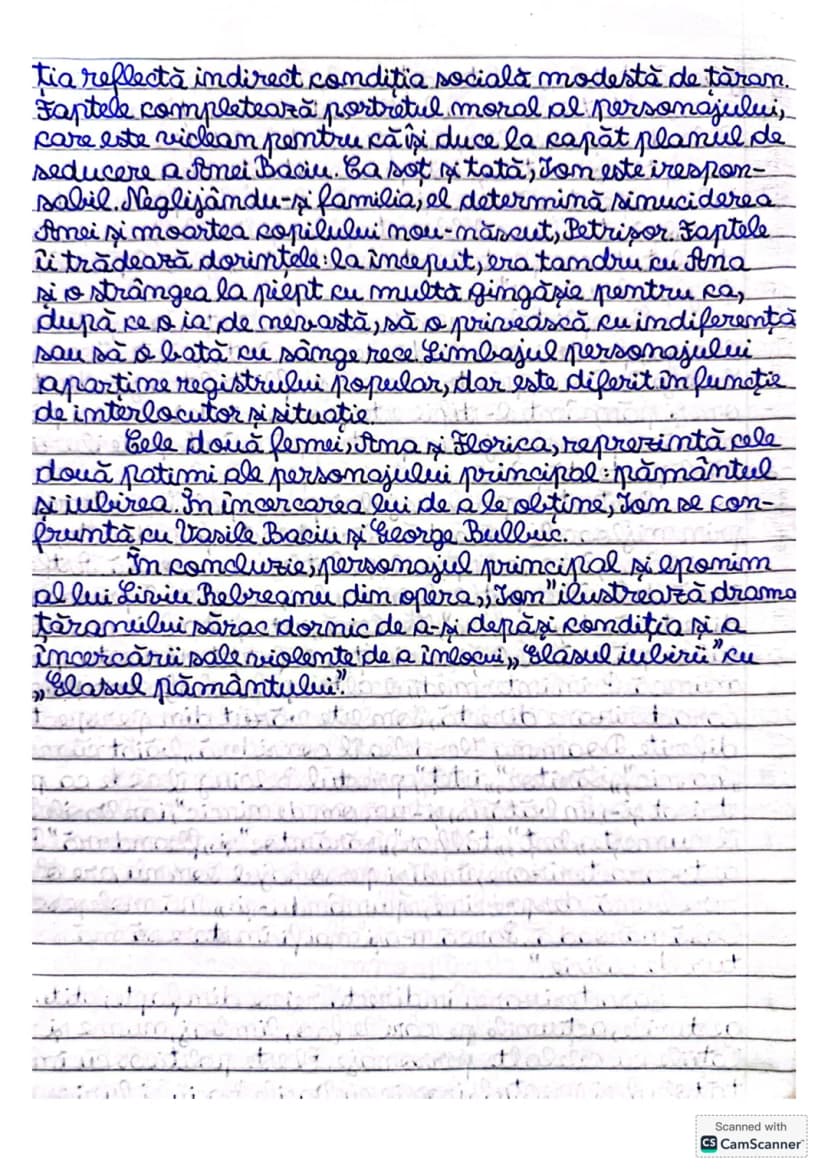 ția reflectă indirect condiția socială modestă de țăran.
Faptele completează portretul moral al personajului,
care este viclean pentru că își duce la capăt planul de
seducere a Anei Baciu. Ca soț și tată, Ion este irespon-
sabil. Neglijându-și familia, el determină sinuciderea
Anei și moartea copilului nou-născut, Petrișor. Faptele
îi trădează dorințele: la început, era tandru cu Ana
și o strângea la piept cu multă gingășie pentru ca,
după ce o ia de nevastă, să o privească cu indiferență
sau să o bată cu sânge rece. Limbajul personajului
aparține registrului popular, dar este diferit în funcție
de interlocutor și situație.
Cele două femei, Ana și Florica, reprezintă cele
două patimi ale personajului principal: pământul
și iubirea. În încercarea lui de a le obține, Ion se con-
fruntă cu Vasile Baciu și George Bulbuc.
În concluzie, personajul principal și eponim
al lui Liviu Rebreanu din opera „Ion" ilustrează drama
țăranului sărac dornic de a-și depăși condiția și a
încercării sale violente de a înlocui „Glasul iubirii" cu
„Glasul pământului".
Scanned with
CS CamScanner